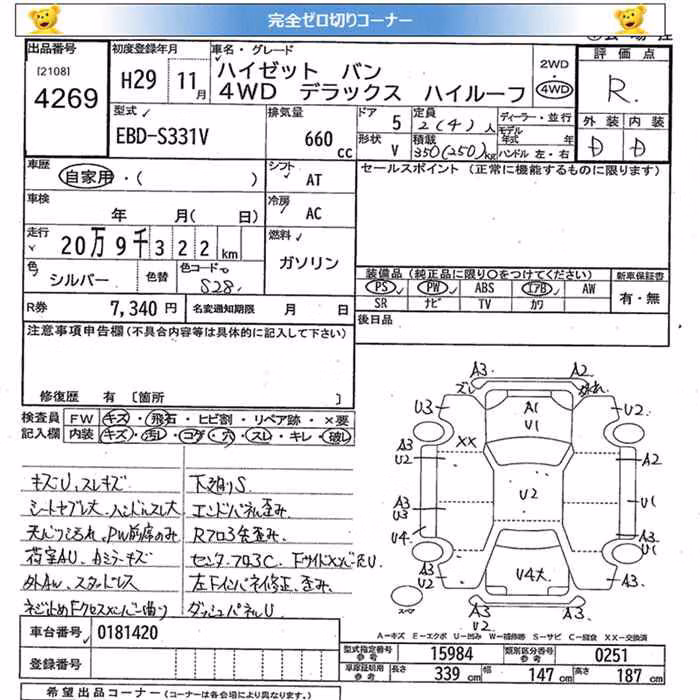 完全ゼロ切りコーナー
出品番号
[2108]
4269
初度登録年月
H29 11月
車名・グレード
ハイゼット バン
4WD デラックス ハイルーフ
2WD
4WD
評価点
R
外装 内装
D D
型式
EBD-S331V
排気量
660 cc
ドア 5
形状 V
定員
2(4)人
積載
350(250)kg
ディーラー・並行
モデル年式 年
ハンドル 左・右
車歴
自家用・( )
シフト
AT
セールスポイント (正常に機能するものに限ります)
車検
年 月( 日)
冷房
AC
走行
20万9千322km
燃料
ガソリン
色
シルバー
色替
色コード
S28
装備品 (純正品に限り○をつけてください)
新車保証書
PS PW ABS エアB AW
SR ナビ TV カワ
有・無
R券 7,340円
名変通知期限 月 日
後日品
注意事項申告欄(不具合内容等は具体的に記入して下さい)
修復歴 有 [箇所 ]
検査員記入欄
FW キズ・飛石・ヒビ割・リペア跡・×要
内装 キズ・汚れ・コゲ・穴・スレ・キレ・破れ
キズU、スレキズ 下廻りS
シートヤブレ大、ハンドルスレ大 エンドパネル歪み
天バリ汚れ、PW前席のみ Rフロア歪み
荷室AU、カミラーキズ センターフロアC
外AW、スタッドレス 左Fインパネ修正、歪み
ネジ止めFクロスメンバー曲り ダッシュパネルU
A3 A2
ズレ
U3 A1 U1 U2
XX
A3 U2 A2
A3 U3 U2 U1
U4 U1
A3 U2 U4大 A3
スペア
A3 U2 A3
A-キズ E-エクボ U-凹み W-補修跡 S-サビ C-腐食 XX-交換済
車台番号 0181420
登録番号
型式指定番号 参考 15984
類別区分番号 参考 0251
車庫証明用 参考 長さ 339cm 幅 147cm 高さ 187cm
希望出品コーナー (コーナーは各会場により異なります。)